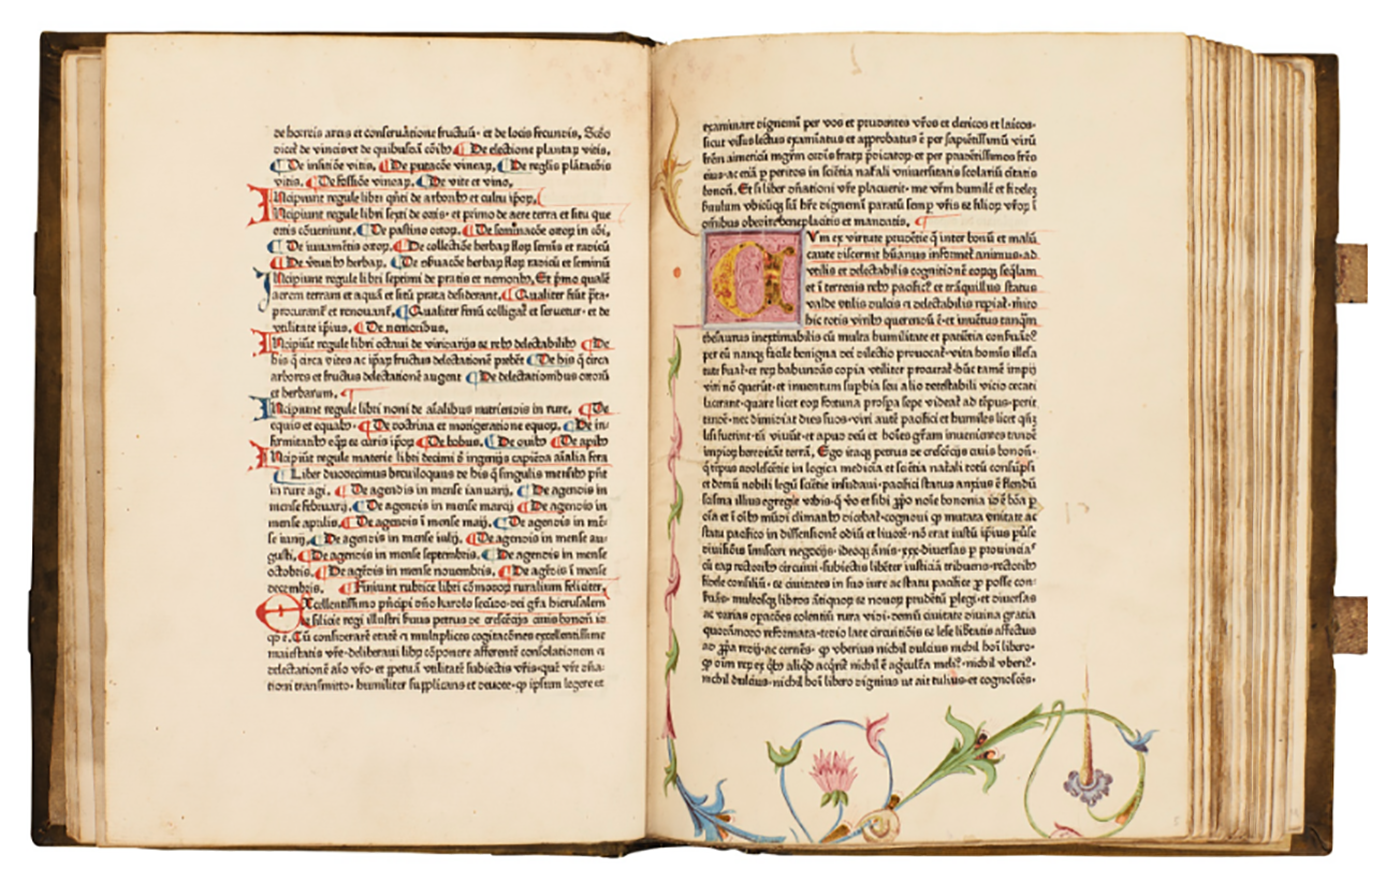 de horreis areis et conseruatione fructuū· et de locis fecundis, Scdo
dicet̄ de vineis et de quibusdā cōib⁹ ¶ De electione plantaꝝ vitis,
¶ De insitiōe vitis, ¶ De putacōe vineaꝝ, ¶ De reglis plātacōis
vitis, ¶ De fossiōe vineaꝝ, ¶ De vite et vino,
INcipiunt regule libri qn̄ti de arborib⁹ et cultu ip̄oꝝ,
INcipiunt regule libri sexti de ortis· et primo de aere terra et situ que
ortis cōueniunt, ¶ De pastino ortoꝝ, ¶ De seminacōe ortoꝝ in cōi,
¶ De iuuamētis ortoꝝ, ¶ De collectiōe herbaꝝ floꝝ semīs et radicū
¶ De v̄tutib⁹ herbaꝝ, ¶ De radicū et seminū
INcipiunt regule libri septimi de pratis et nemorib⁹, Et pͥmo qualē
aerem terram et aquā et sitū prata desiderant, ¶ Qualiter fiūt p̄ta·
procurant̄ et renouant̄, ¶ Qualiter fenū colligat̄ et seruetur· et de
vtilitate ip̄ius, ¶ De nemoribus,
INcipiūt regule libri octaui de viridarijs et reb⁹ delectabilib⁹ ¶ De
his q̄ circa vites ac ip̄aꝝ fructus delectationē prebēt ¶ De his q̄ circa
arbores et fructus delectationē augent ¶ De delectationibus ortorū
et herbarum, ¶
INcipiunt regule libri noni de aīalibus nutriendis in rure, ¶ De
equis et equab⁹· ¶ De doctrina et morigeratione equoꝝ, ¶ De in·
firmitatib⁹ eqͦꝝ et curis ip̄oꝝ ¶ De bobus, ¶ De ouib⁹ ¶ De apib⁹
INcipiūt regule materie libri decimi d̄ ingenijs capiēdi aīalia fera
¶ Liber duodecimus breuiloquus de his q̄ singulis mensib⁹ pn̄t
in rure agi, ¶ De agendis in mense ianuarij, ¶ De agendis in
mense februarij, ¶ De agendis in mense marcij ¶ De agendis in
mense aprilis, ¶ De agendis ī mense maij, ¶ De agendis in mē·
se iunij, ¶ De agendis in mense iulij, ¶ De agendis in mense au·
gusti, ¶ De agendis in mense septembris, ¶ De agendis in mense
octobris, ¶ De agēdis in mense nouembris, ¶ De agēdis ī mense
decembris, ¶ Finiunt rubrice libri cōmodoꝝ ruralium feliciter,
EXcellentissimo pn̄cipi dn̄o karolo secūdo· dei gr̄a hierusalem
et sicilie regi illustri petrus de crescencijs ciuis bonoñ id
qd̄ ē, Cū considerarē etatē a multiplices cogitacōnes excellentissime
maiestatis vr̄e· deliberaui libꝝ cōponere afferentē consolationem a
delectationē aīo vr̄o· et ꝑpetuā vtilitatē subiectis vr̄is· quē vr̄e dn̄a·
tioni transmitto· humiliter supplicans et deuote· qꝫ ipsum legere et
examinare dignemī per vos et prudentes vr̄os et clericos et laicos·
sicut visus lectus examīatus et approbatus ē per sapiētissimū virū
frēm aimericū mgr̄m ordīs fratꝝ p̄dicatoꝝ· et per prudētissimos frēs
eius· ac etiā ꝑ peritos in sciētia nat̄ali vniuersitatis scolariū ciuitatis
bonoñ, Et si liber dn̄ationi vr̄e placuerit· me vr̄m humilē et fidelē
famulum vbicūqꝫ sū hr̄e dignemī paratū semꝑ vr̄is et filioꝝ vr̄oꝝ ī
omnibus obedire beneplacitis et mandatis, ¶
CVm ex virtute prudētie q̄ inter bonū et malū
caute discernit hūanus informet̄ animus· ad
vtilis et delectabilis cognitionē eoꝝqꝫ seq̄lam
et ī terrenis reb⁹ pacific⁹ et trāquillus status
valde vtilis dulcis a delectabilis repiat̄· mīto
hic totis virib⁹ querend⁹ ē· et inuētus tanqͣm
thesaurus inextimabilis cū multa humilitate et patiētia conseruād⁹
per eū nanqꝫ facile benigna dei dilectio prouocat̄· vita homīs illesa
tute fruat̄· et reꝝ habundās copia vtiliter procurat̄· hūc tamē impij
viri nō querūt· et inuentum suphia seu alio detestabili vicio cecati
lacerant· quare licet eoꝝ fortuna prospa sepe videat̄ ad tēpus· perit
tandē· nec dimidiāt dies suos· viri autē pacifici et humiles licet qn̄qꝫ
lesi fuerint· tn̄ viuūt· et apud deū et hoīes gr̄am inuenientes tandē
impioꝝ hereditāt terrā, Ego itaqꝫ petrus de crescēcijs ciuis bonoñ·
qͥ tp̄us adolescētie in logica medicīa et sciētia nat̄ali totū consūpsi
et demū nobili legū sciētie insudaui· pacifici status
illius egregie vrbis· q̄ v̄o et sibi ꝓpͥo noīe bononia id ē bōa ꝑ
oīa et ī oīb⁹ mūdi climatib⁹ dicebat̄· cognoui qꝫ mutata vnitate ac
statu pacifico in dissensionē odiū et liuorē· nō erat iustū ip̄ius ꝑuse
diuisiōis īmisceri negocijs· ideoqꝫ ānis· xxx· diuersas ꝑ prouincias
cū eaꝝ rectorib⁹ circuiui· subiectis libēter iusticiā tribuens· rectorib⁹
fidele consiliū· et ciuitates in suo iure ac statu pacifice ꝓ posse con·
seruās· multosqꝫ libros ātiquoꝝ et nouoꝝ prudētū plegi· et diuersas
ac varias opacōes colentiū rura vidi· demū ciuitate diuina gratia
quodāmodo reformata· tedio late circuitiōis et lese libtatis affectus
ad ꝓpͥa redij· ac cernēs· qꝫ vberius nichil dulcius nichil hoī libero·
qꝫ oīm reꝝ ex qͥb⁹ aliqͥd acqͥrit̄ nichil ē agͥcult̄a meli⁹· nichil vberi⁹·
nichil dulcius· nichil hoī libero dignius ut ait tulius· et cognoscēs·